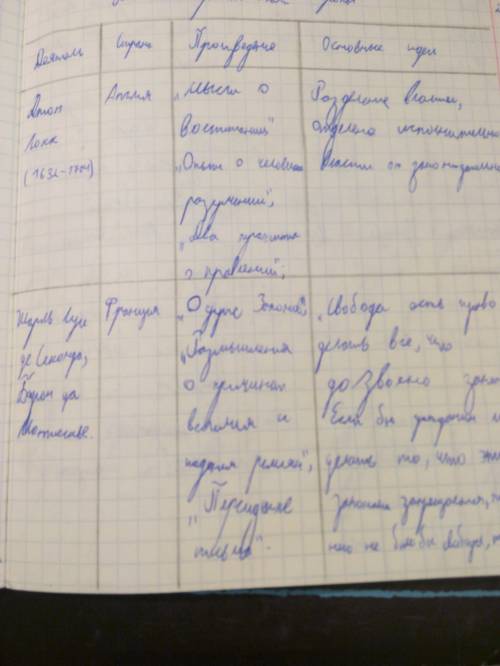 Деятели Страна Произведение Основные идеи
Джон Локк (1632-1704)
Англия
„Мысли о
воспитании"
„Опыт о человеч
разумении",
„Два трактата
о правлении",
Разделение власти,
отделение исполнительной
власти от законодательной
Шарль Луи
де Секонда,
Барон де
Монтескье.
Франция
„О духе Законов",
„Размышления
о причинах
величия и
падения римлян",
„Персидские
письма".
„Свобода есть право
делать все, что
дозволено зако
Если бы гражданин м
делать то, что эти
законами запрещается, то
него не было бы свободы, т